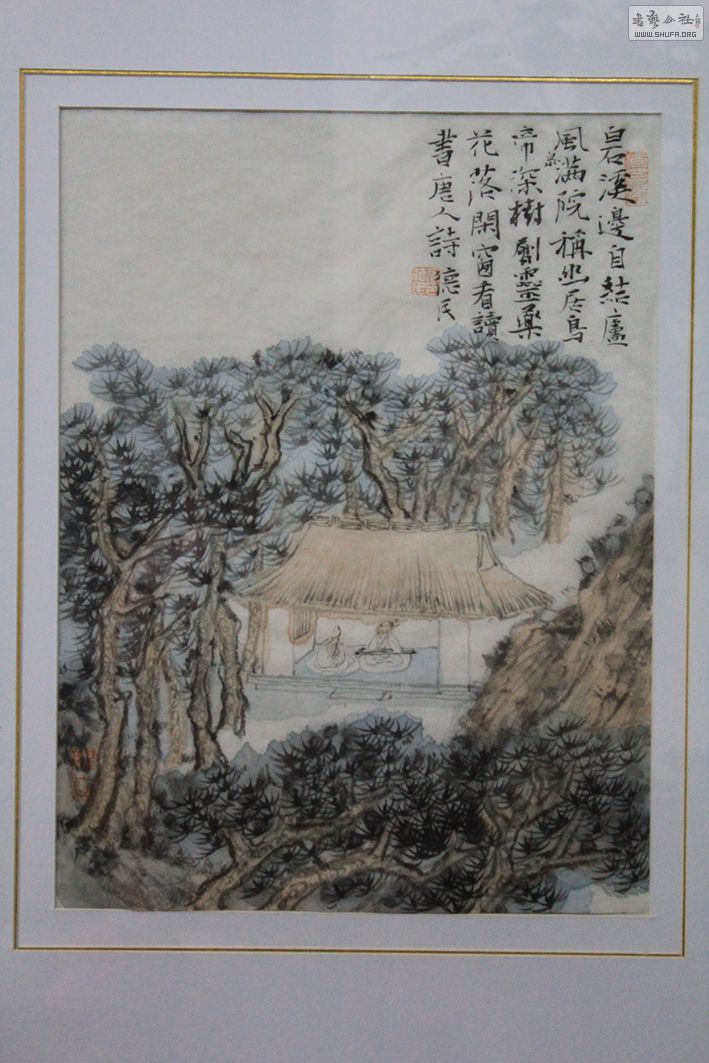 书艺公社
WWW.SHUFA.ORG
白石溪邊自結廬
風泉滿院稱幽居鳥
啼深樹劚靈藥
花落閑窗看讀
書唐人詩民